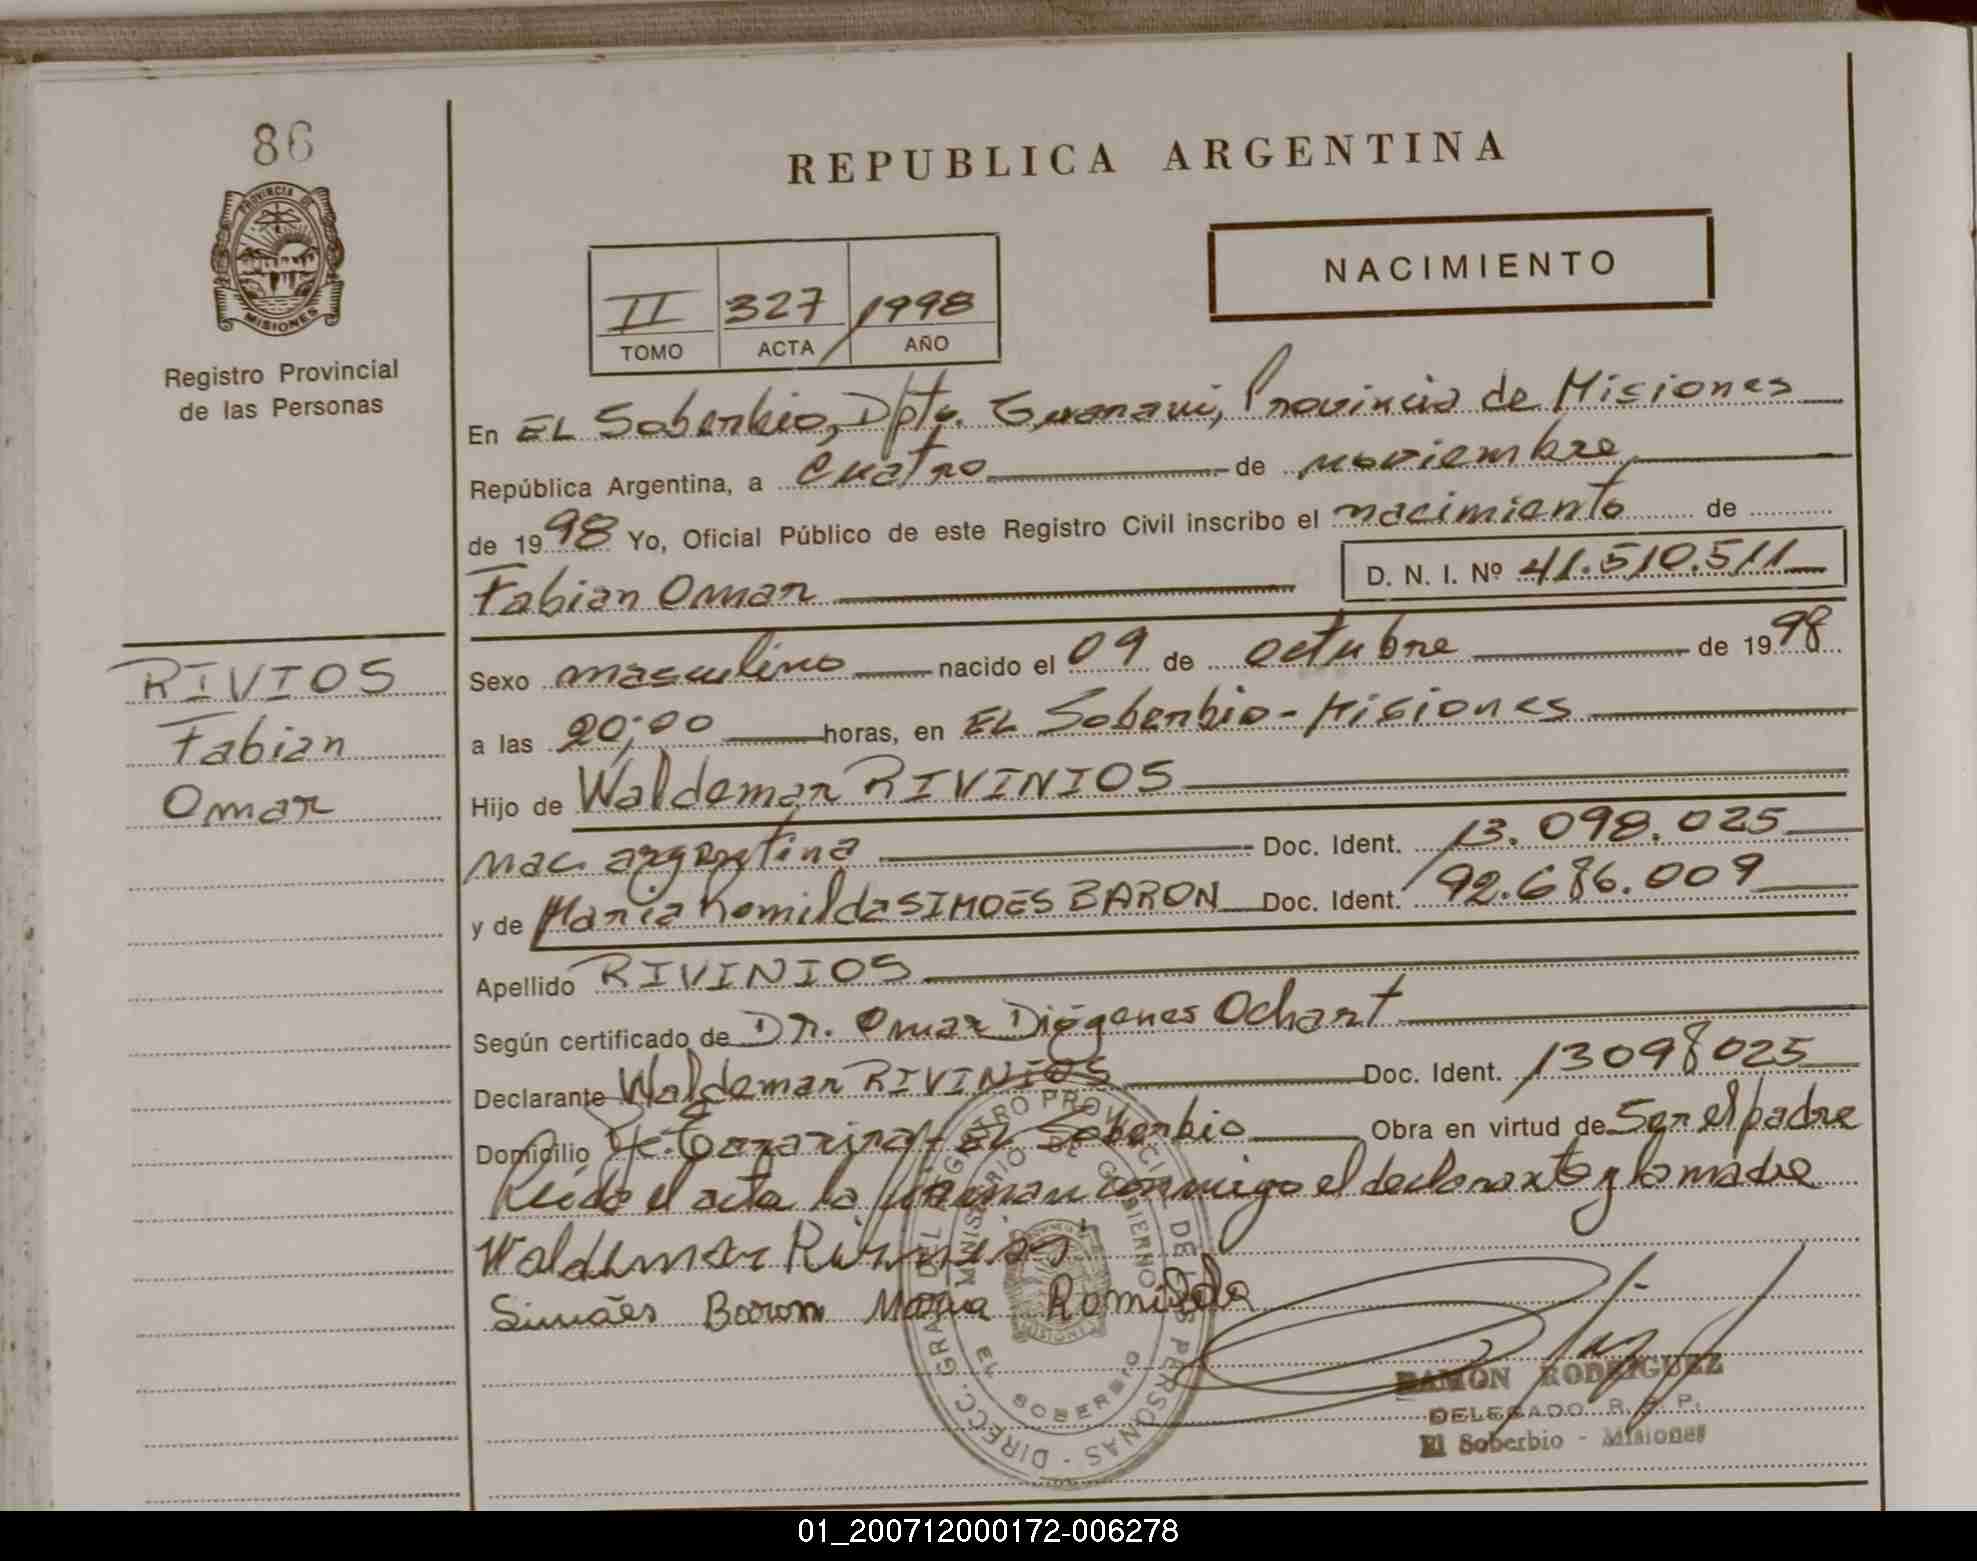 86
PROVINCIA DE
MISIONES
Registro Provincial
de las Personas
REPUBLICA ARGENTINA
NACIMIENTO
II 327 1998
TOMO ACTA AÑO
En EL Soberbio, Dpto. Guarani, Provincia de Misiones
República Argentina, a cuatro de noviembre
de 1998 Yo, Oficial Público de este Registro Civil inscribo el nacimiento de
Fabian Omar D. N. I. Nº 41.510.511
RIVIOS
Fabian
Omar
Sexo masculino nacido el 09 de octubre de 1998
a las 20,00 horas, en EL Soberbio - Misiones
Hijo de Waldemar RIVINIOS
nac. argentina Doc. Ident. 13.098.025
y de Maria Romilda SIMOES BARON Doc. Ident. 92.686.009
Apellido RIVINIOS
Según certificado de Dr. Omar Diógenes Ochart
Declarante Waldemar RIVINIOS Doc. Ident. 13098025
Domicilio EL Soberbio Obra en virtud de Ser el padre
Leído el acta la firman conmigo el declarante y la madre
Waldemar Rivinios
Simões Baron Maria Romilda
DIRECC. GRAL DEL REGISTRO PROVINCIAL DE LAS PERSONAS -
MINISTERIO DE GOBIERNO
EL SOBERBIO
MISIONES
RAMON RODRIGUEZ
DELEGADO R. P. P.
El Soberbio - Misiones
01_200712000172-006278